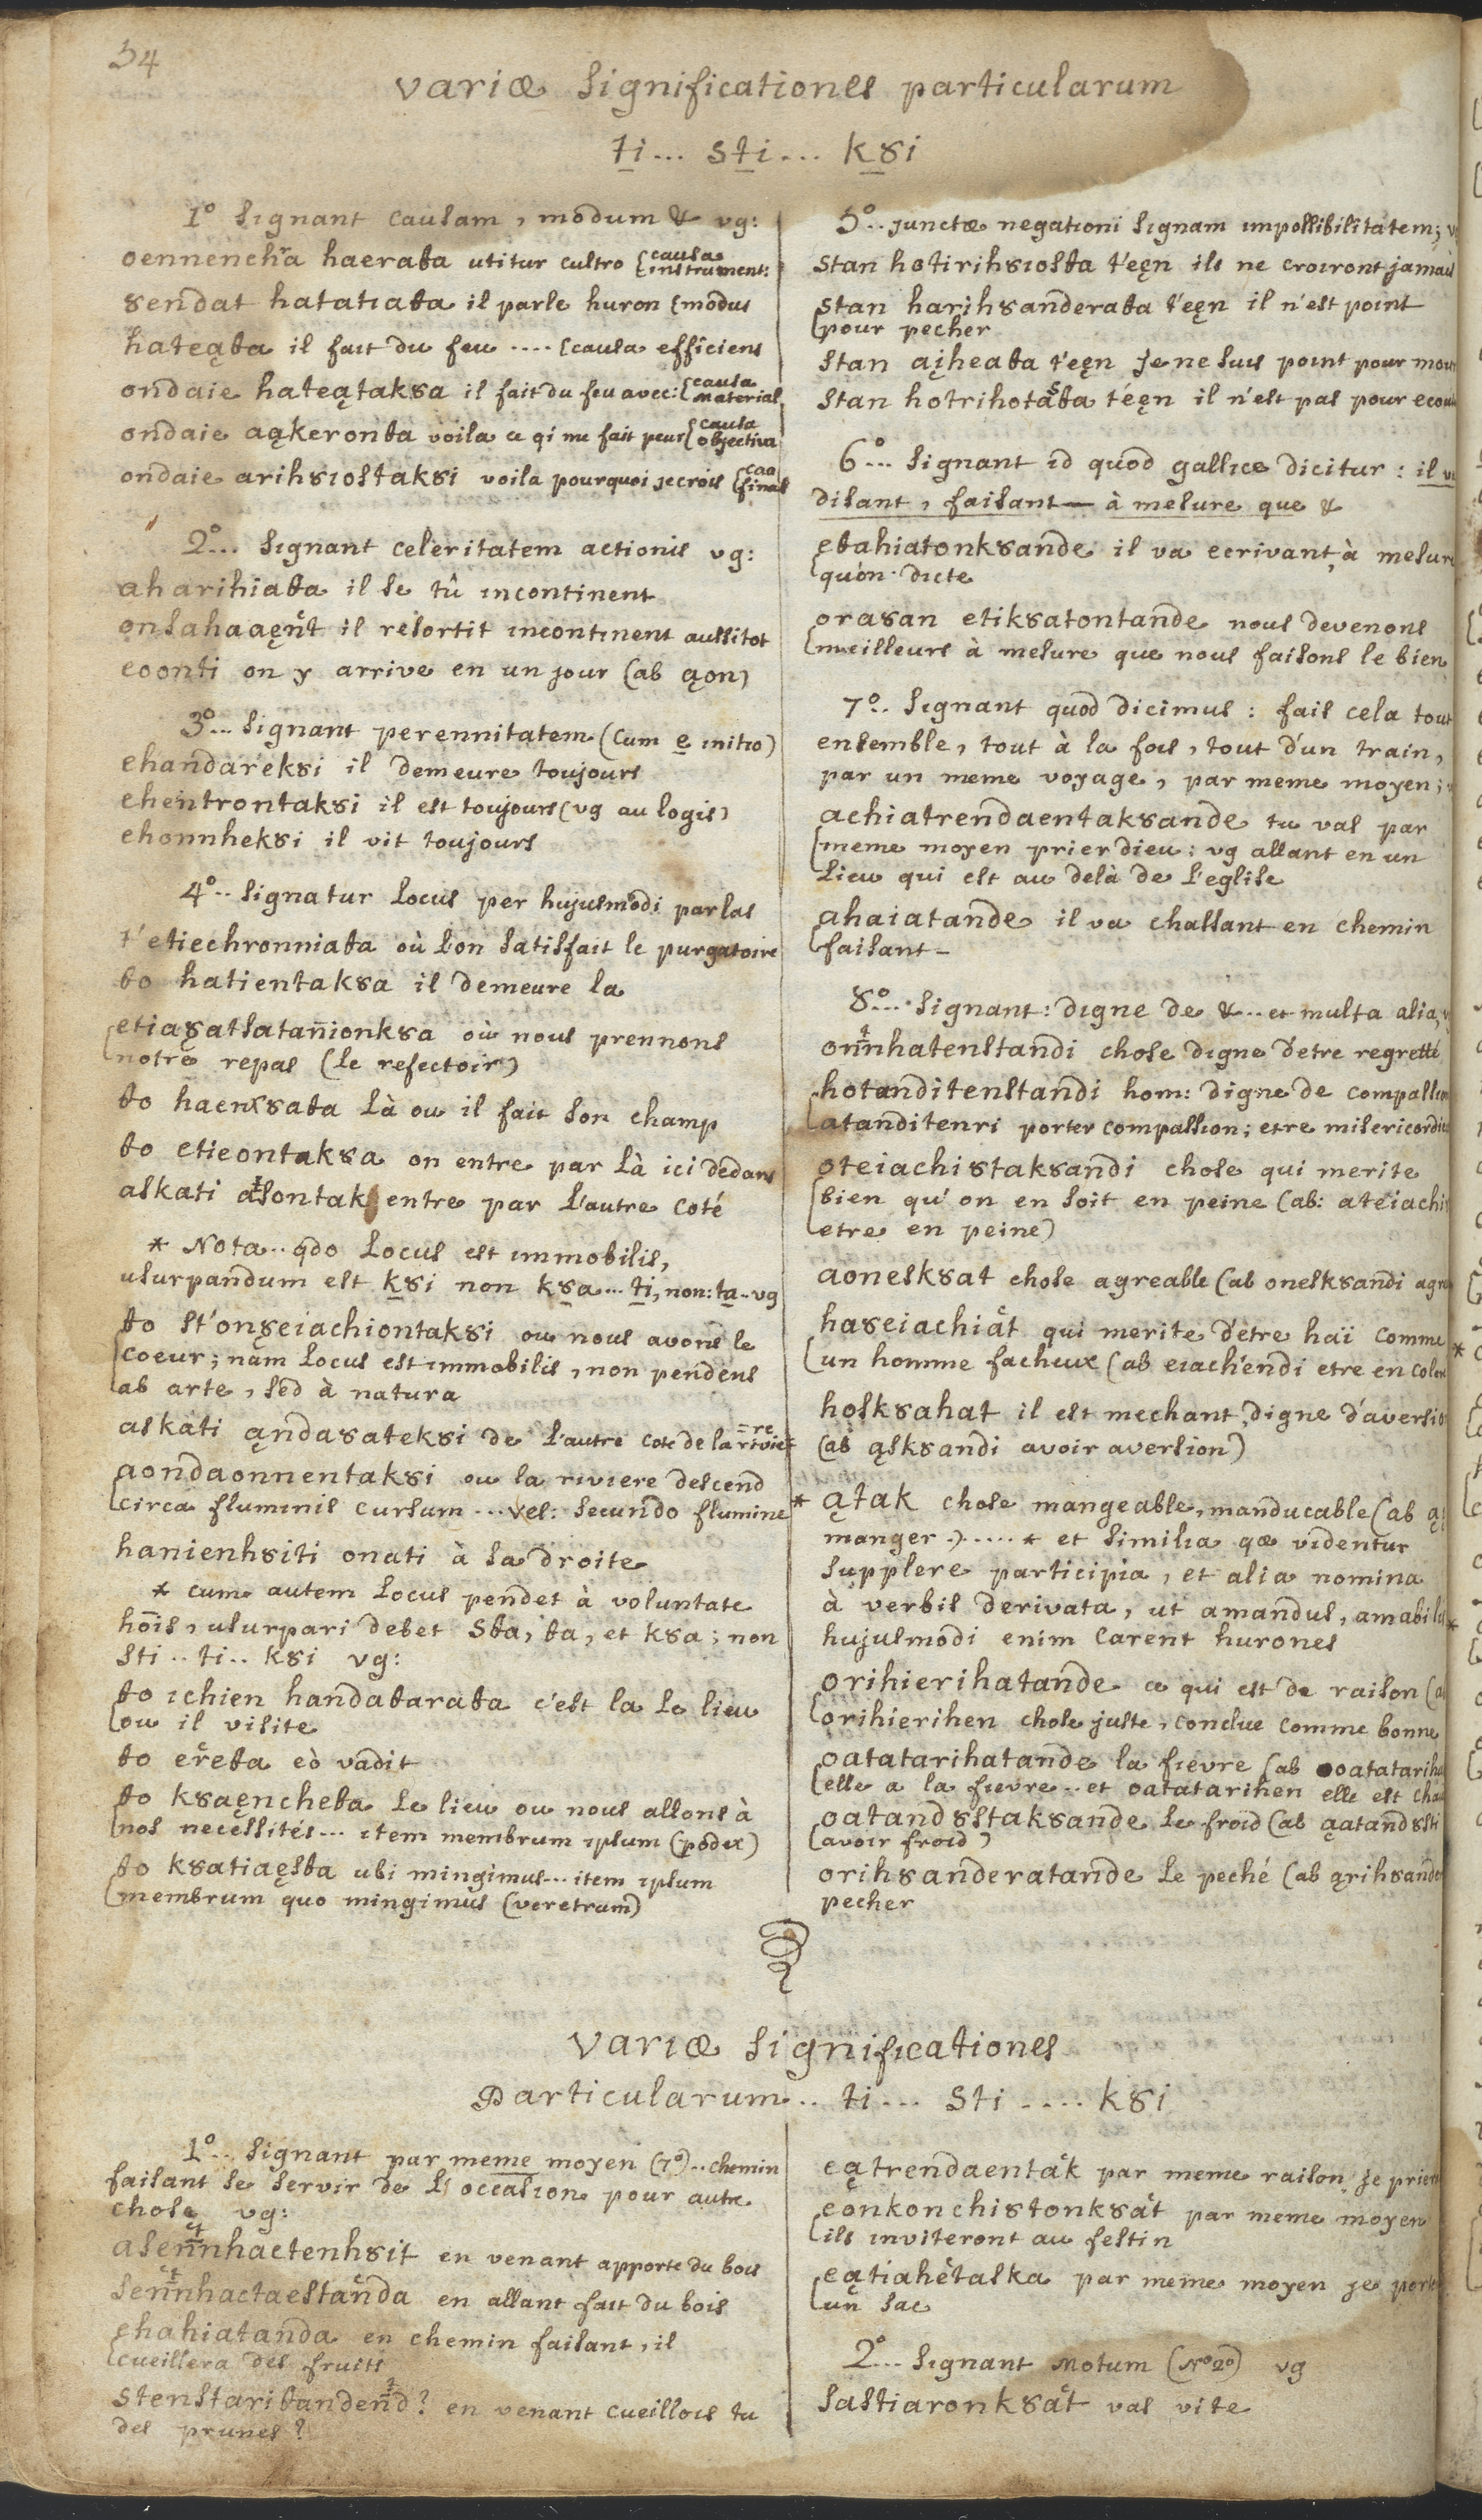 34
variæ significationes particularum
ti... sti... k8i
1° signant causam, modum & vg:
oennenchra haeraθa utitur cultro {causa instrument:
8endat hatatiaθa il parle huron {modus
hateąθa il fait du feu .... {causa efficiens
ondaie hateątak8a il fait du feu avec: {causa material
ondaie aąkeronθa voila ce qi me fait peur {causa objectiva
ondaie arih8iostak8i voila pourquoi je crois {caa final
2°... signant celeritatem actionis vg:
aharihiaθa il se tû incontinent
onsahaaęnt il resortit incontinent aussitot
eoonti on y arrive en un jour (ab ąon)
3°... signant perennitatem (cum e initio)
ehandarek8i il demeure toujours
ehentrontak8i il est toujours (vg au logis)
ehonnhek8i il vit toujours
4°.. signatur locus per hujusmodi parlas
t'etiechronniaθa où l'on satisfait le purgatoire
θo hatientak8a il demeure la
etiaą8atsatanionk8a où nous prennons
notre repas (le refectoir)
θo haen8aθa là ou il fait son champ
θo etieontak8a on entre par là ici dedans
askati asontak entre par l'autre coté
* Nota.. qdo locus est immobilis,
usurpandum est k8i non k8a... ti, non: ta.. vg
θo st'oną8eiachiontak8i ou nous avons le
coeur; nam locus est immobilis, non pendens
ab arte, sed à natura
askati ąnda8atek8i de l'autre coté de la riviere
aondaonnentak8i ou la riviere descend
circa fluminis cursum ... vel: secundo flumine
hanienh8iti onati à sa droite
* cum autem locus pendet à voluntate
hois, usurpari debet sθa, θa, et k8a; non
sti.. ti.. k8i vg:
θo ichien handaθaraθa c'est la le lieu
ou il visite
θo ereθa eò vadit
θo k8aęncheθa le lieu ou nous allons à
nos necessités... item membrum ipsum (podex)
θo k8atiaęsθa ubi mingimus... item ipsum
membrum quo mingimus (veretrum)
5°.. junctæ negationi signant impossibilitatem;
stan hotirih8iosθa t'eęn ils ne croiront jamais
stan harih8anderaθa t'eęn il n'est point
pour pecher
stan aįheaθa t'eęn je ne suis point pour
stan hotrihota8θa t'éęn il n'est pas pour
6°... signant id quod gallice dicitur: il
disant, faisant — à mesure que &
eθahiatonk8ande il va ecrivant, à mesure
qu'on dicte
ora8an etik8atontande nous devenons
meilleurs à mesure que nous faisons le bien
7°.. signant quod dicimus: fais cela tout
ensemble, tout à la fois, tout d'un train,
par un meme voyage, par meme moyen;
achiatrendaentak8ande tu vas par
meme moyen prier dieu: vg allant en un
lieu qui est au delà de l'eglise
ahaiatande il va chassant en chemin
faisant -
8°... signant: digne de &... et multa alia,
onnhatenstandi chose digne d'etre regretté
hotanditenstandi hom: digne de
atanditenri porter compassion; etre
oteiachistak8andi chose qui merite
bien qu'on en soit en peine (ab: ateiachi
etre en peine)
aonesk8at chose agreable (ab onesk8andi
ha8eiachiat qui merite d'etre haï comme
un homme facheux (ab eiachiendi etre en
hosk8ahat il est mechant, digne d'aversion
(ab ąsk8andi avoir aversion)
* ątak chose mangeable, manducable (ab
manger) ..... * et similia qæ videntur
supplere participia, et alia nomina
à verbis derivata, ut amandus, amabilis
hujusmodi enim carent hurones
orihierihatande ce qui est de raison
orihierihen chose juste, conclue comme bonne
oatatarihatande la fievre (ab oatatariha
elle a la fievre... et oatatarihen elle est
oatand8stak8ande le froid (ab ąatand8sti
avoir froid)
orih8anderatande le peché (ab ąrih8ander
pecher
variæ significationes
Particularum.. ti... sti .... k8i
1°... signant par meme moyen (7°).. chemin
faisant se servir de l'occasion pour autre
chose vg:
asennhactenh8it en venant apporte du bois
sennhactaestanda en allant fait du bois
ehahiatanda en chemin faisant, il
cueillera des fruits
stenstariθandend? en venant cueillois tu
des prunes?
eątrendaentak par meme raison je
eonkonchistonk8at par meme moyen
ils inviteront au festin
eątiahetaska par meme moyen je
un sac
2°... signant motum (N° 2°) vg
sastiaronk8at vas vite